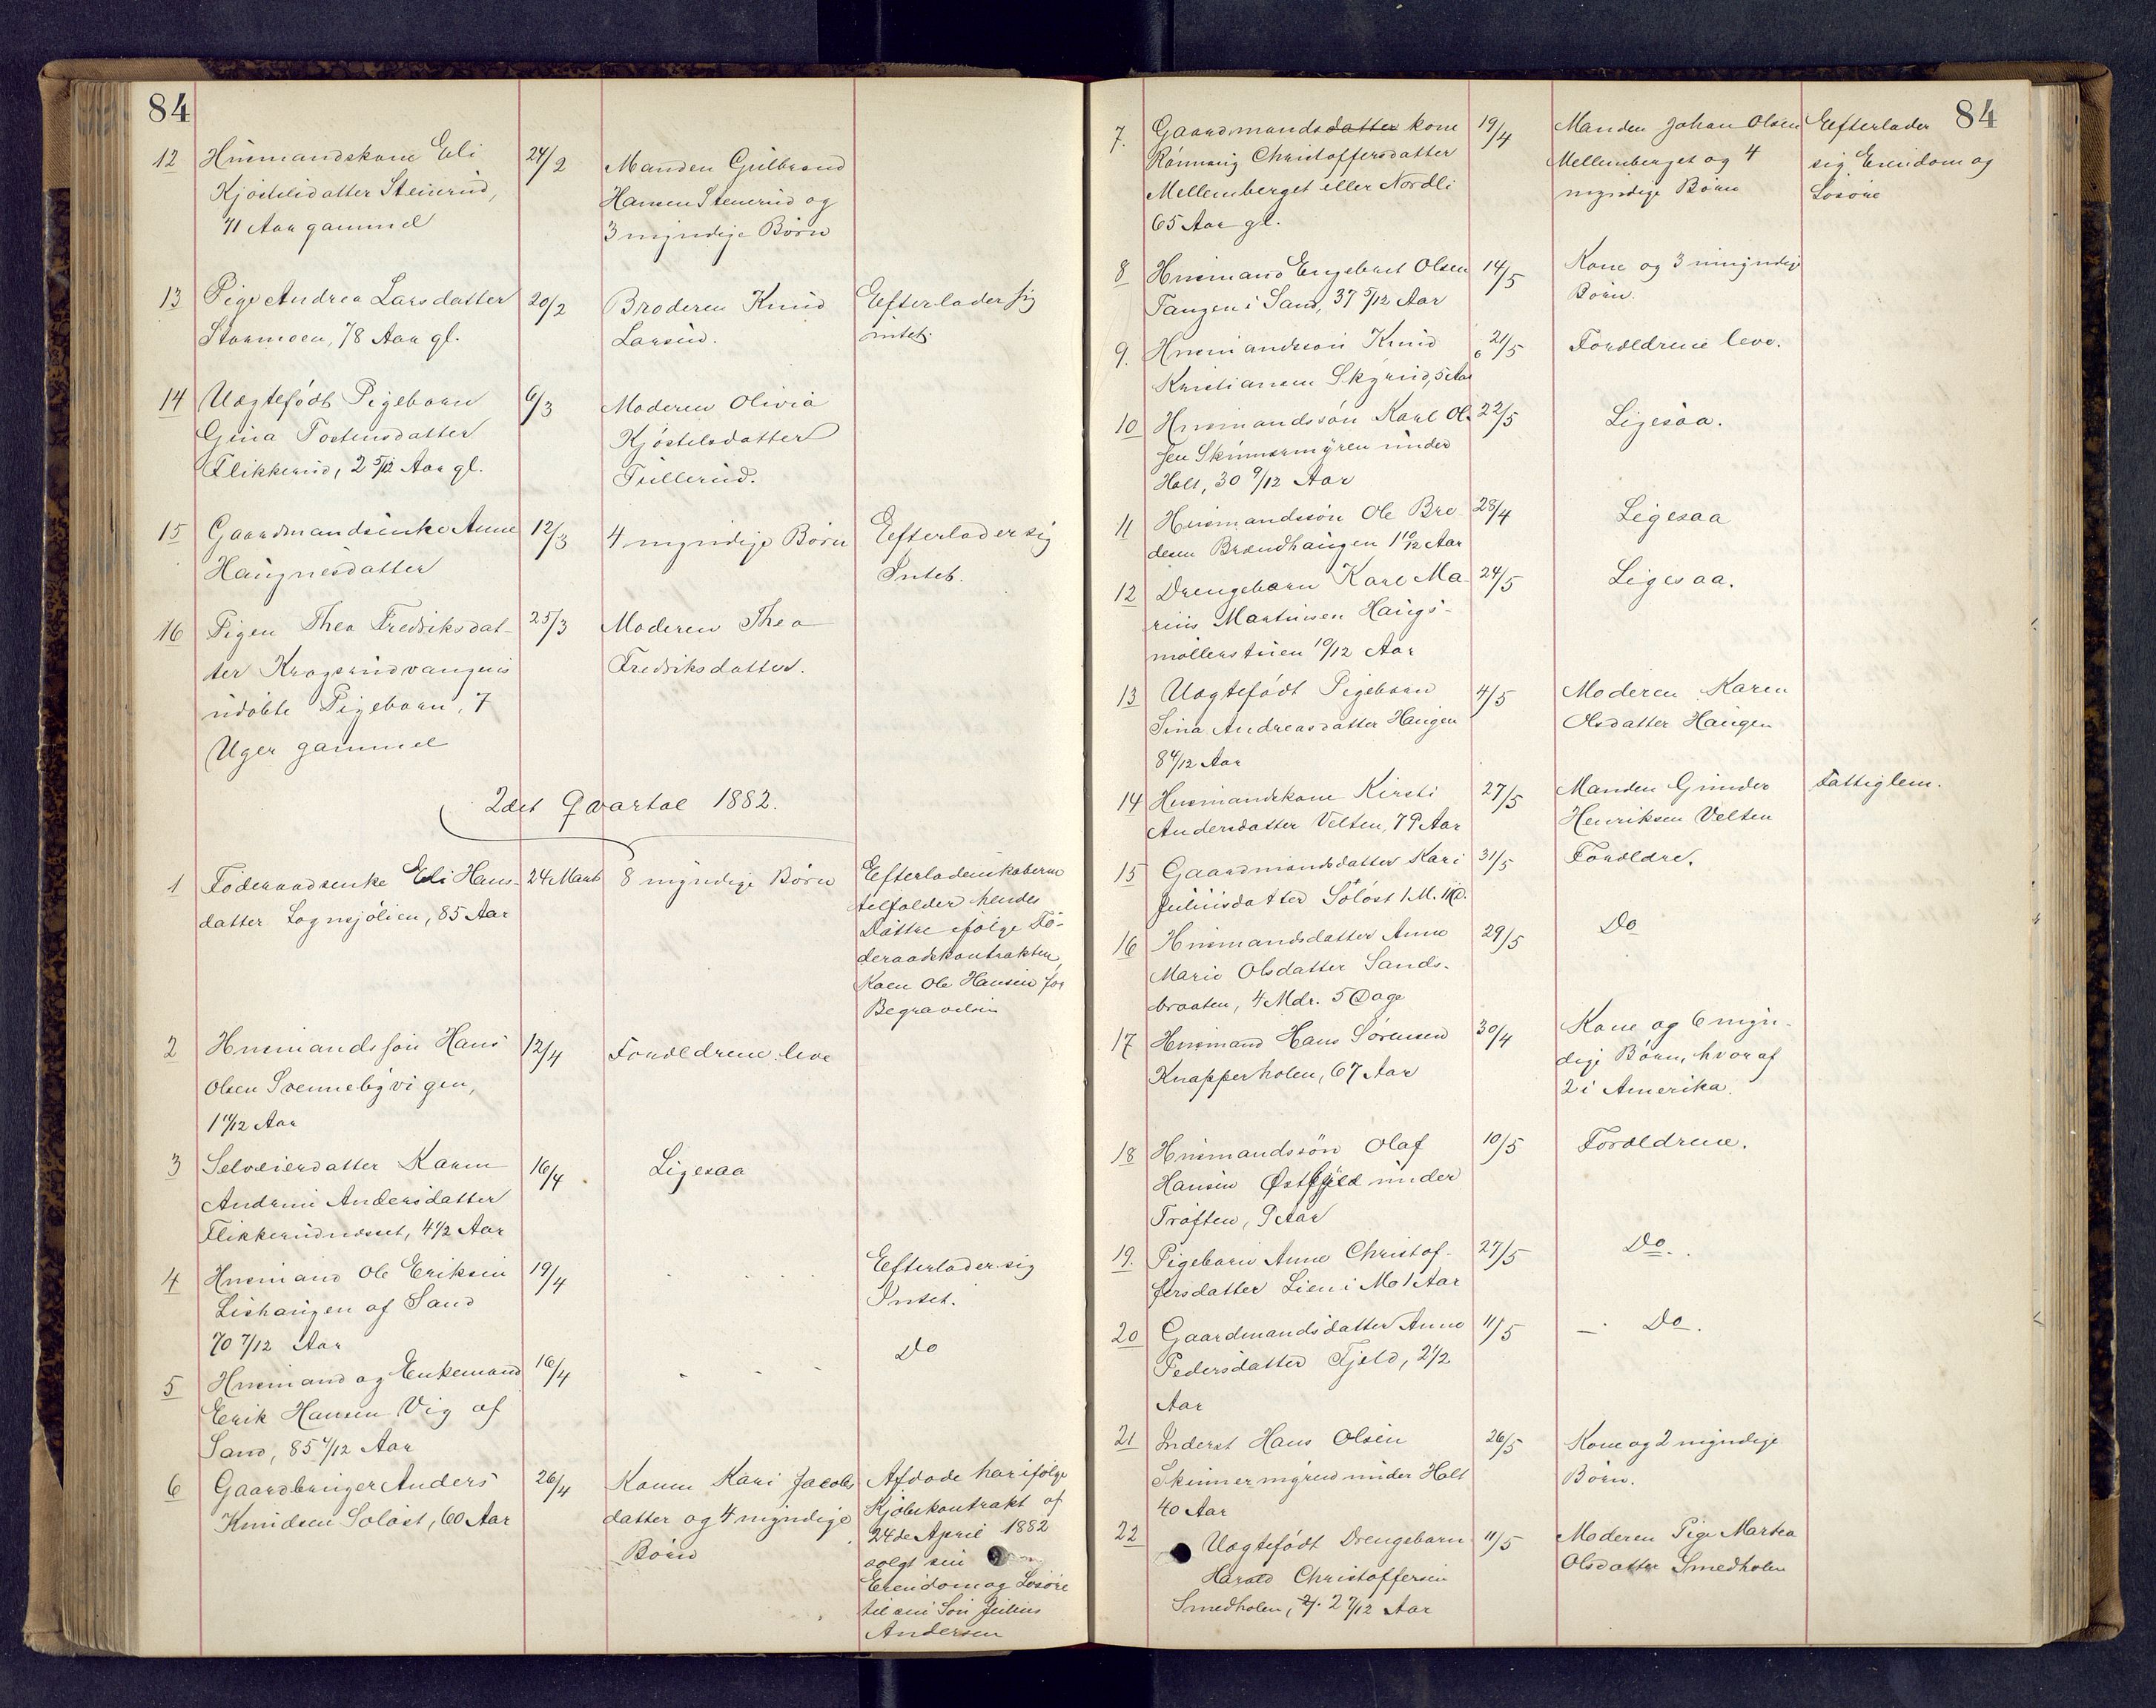 84
12 Husmandskone Eli 24/2 Manden Gulbrand
Kjøstelsdatter Steinrud, Hansen Stenerud og
71 Aar gammel 3 myndige Børn
13 Pige Andrea Larsdatter 20/2 Broderen Knud Efterlader sig
Stormoen, 78 Aar gl. Larsud. intet.
14 Uægtefødt Pigebarn 6/3 Moderen Olivia
Gina Tostensdatter Kjøstelsdatter
Flikkerud, 2 5/12 Aar gl. Tullerud.
15 Gaardmandsenke Anne 12/3 4 myndige Børn Efterlader sig
Haugnesdatter Intet.
16 Pigen Thea Fredriksdat- 25/3 Moderen Thea
ter Krogsrudvangens Fredriksdatter.
udøbte Pigebarn, 7
Uger gammel
2det Qvartal 1882.
1 Føderaadsenke Eli Hans- 24 Marts 8 myndige Børn Efterladenskaberne
datter Lognsjølien, 85 Aar tilfalder hendes
Døttre ifølge Fø-
deraadskontrakten,
Ole Hansen for
Begravelsen
2 Husmandssøn Hans 12/4 Forældrene leve
Olsen Svennebyvigen,
1 11/12 Aar
3 Selveierdatter Karen 16/4 Ligesaa
Andrine Andersdatter
Flikkerudnesset, 4 1/2 Aar
4 Husmand Ole Eriksen 19/4 Efterlader sig
Lishaugen af Sand Intet.
70 7/12 Aar
5 Husmand og Enkemand 16/4 - - - Do
Erik Hansen Vig af
Sand, 85 4/12 Aar
6 Gaardbruger Anders 26/4 Konen Kari Jacobs Afdøde har ifølge
Knudsen Soløst, 60 Aar datter og 4 myndige Kjøbekontrakt af
Børn 24de April 1882
solgt sin
Eiendom og Løsøre
til sin Søn Julius
Andersen
84
7. Gaardmandsdatter kone 19/4 Manden Johan Olsen Efterlader
Rønnaug Christoffersdatter Mellemberget og 4 sig Eiendom og
Mellemberget eller Nordli myndige Børn Løsøre
65 Aar gl.
8 Husmand Engebret Olsen 14/5 Kone og 3 umyndige
Tangen i Sand, 37 5/12 Aar Børn.
9. Husmandssøn Knud 21/5 Forældrene leve.
Kristiansen Skyrud, 5 Aar
10 Husmandssøn Karl Ol- 22/5 Ligesaa.
sen Skinnarmyren under
Holt, 30 9/12 Aar
11 Husmandssøn Ole Bre- 28/4 Ligesaa
desen Brændhaugen 1 10/12 Aar
12 Drengebarn Karl Ma- 24/5 Ligesaa.
rius Martinsen Haugs-
møllerstuen 10/12 Aar
13 Uægtefødt Pigebarn 4/5 Moderen Karen
Sina Andreasdatter Haugen Olsdatter Haugen
8 4/12 Aar
14 Husmandskone Kirsti 27/5 Manden Gunder Fattiglem.
Andersdatter Velten, 79 Aar Henriksen Velten
15 Gaardmandsdatter Kari 31/5 Forældre.
Juliusdatter Soløst 1 M. 11 D.
16 Husmandsdatter Anne 29/5 Do
Marie Olsdatter Sands-
braaten, 4 Mdr. 5 Dage
17 Husmand Hans Sørensen 30/4 Kone og 6 myn-
Knapperholen, 67 Aar dige Børn, hvoraf
2 i Amerika.
18 Husmandssøn Olaf 10/5 Forældrene.
Hansen Østfjeld under
Trøften, 9 Aar
19. Pigebarn Anne Christof- 27/5 Do.
fersdatter Lien i Mo 1 Aar
20 Gaardmandsdatter Anne 11/5 — Do.
Pedersdatter Fjeld, 2 1/2
Aar
21 Inderst Hans Olsen 26/5 Kone og 2 myndige
Skinnermyren under Holt Børn.
40 Aar
22 Uægtefødt Drengebarn 11/5 Moderen Pige Marthea
Harald Christoffersen Olsdatter Smedholen
Smedholen, 2 7/12 Aar